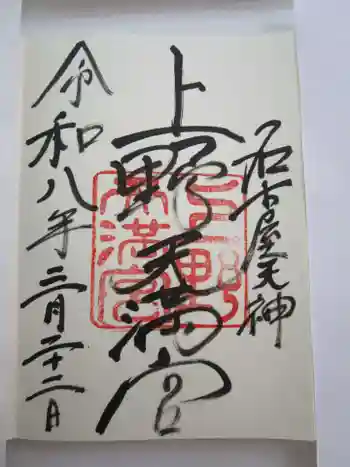 名古屋天神
上野天満宮
令和八年三月二十二日
上野天満宮